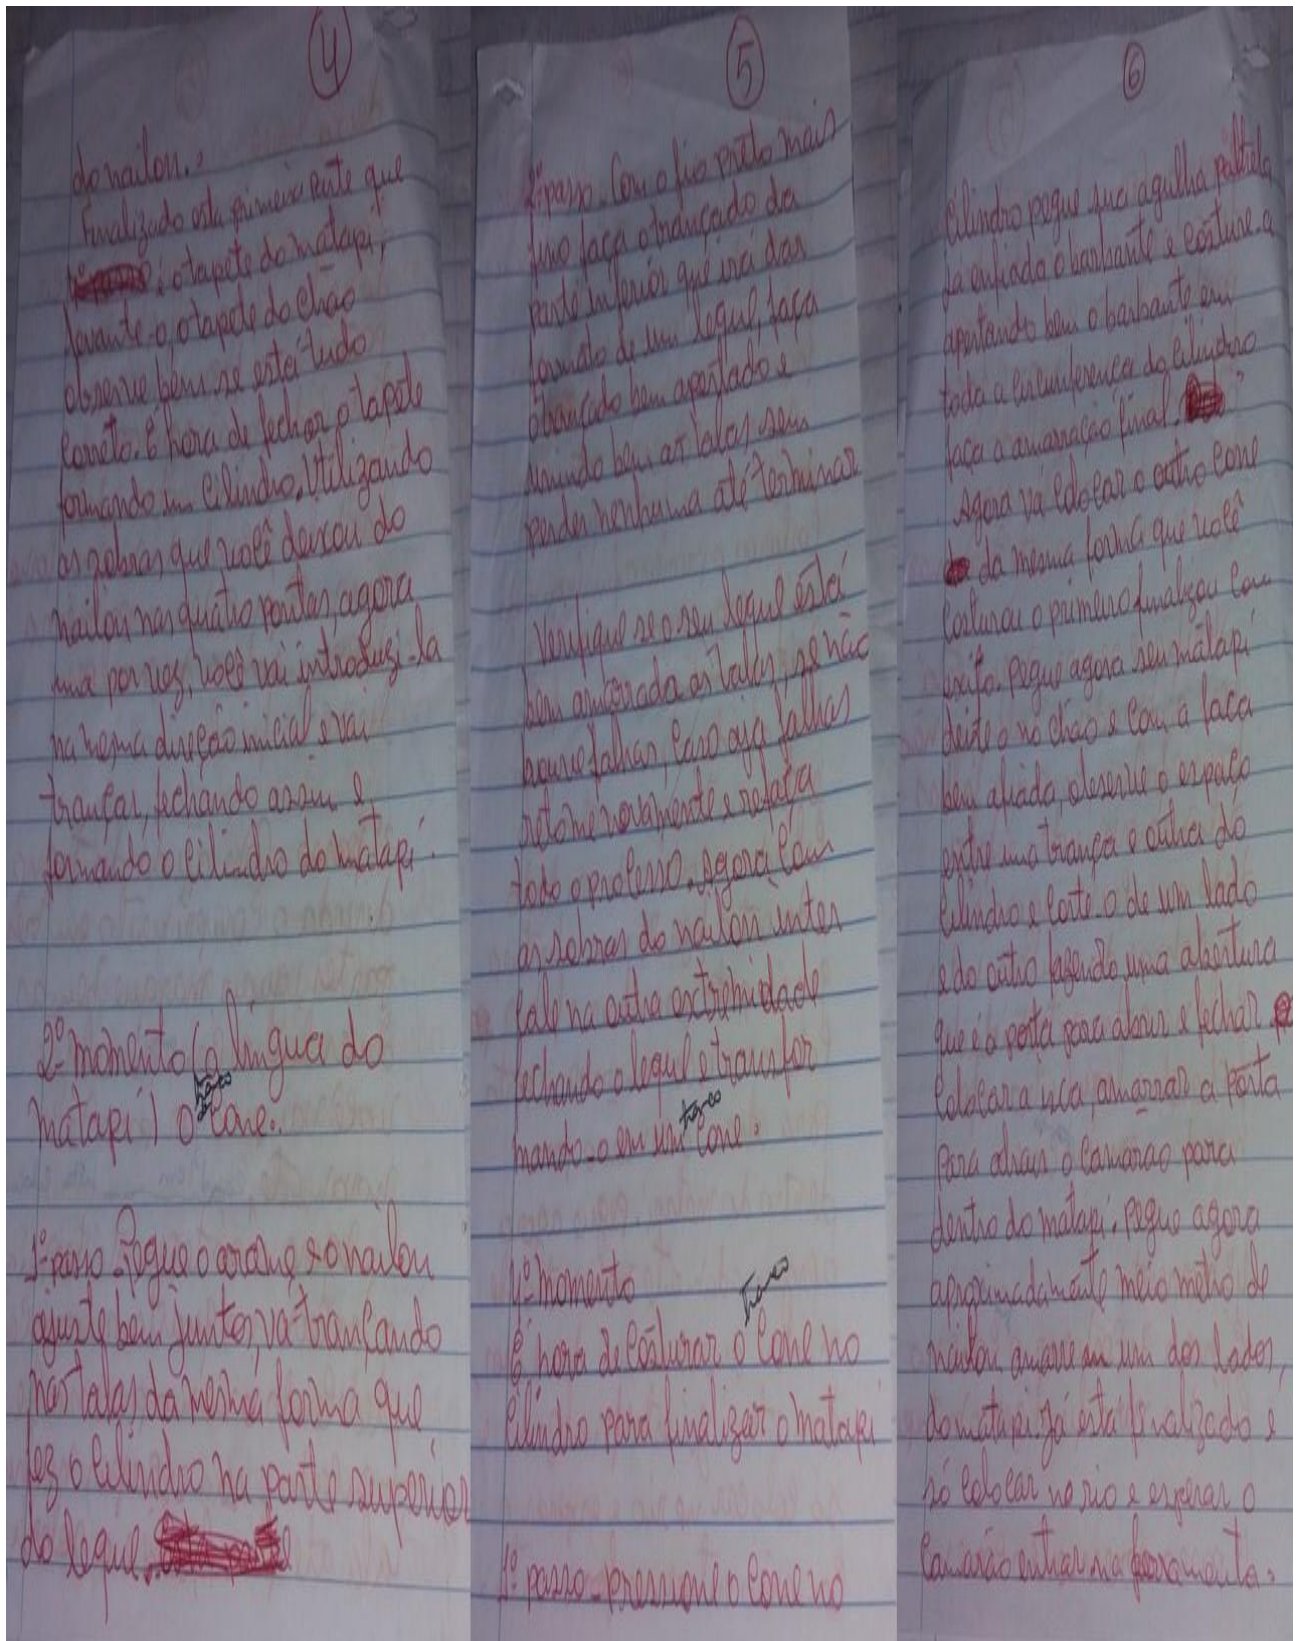 4
do nailon.
Finalizado esta primeira parte que
é o tapete do matapi,
levante-o o tapete do chão
observe bem se está tudo
correto. É hora de fechar o tapete
formando um cilindro. Utilizando
as sobras que você deixou do
nailon nas quatro pontas, agora
uma por vez, você vai introduzi-la
na mesma direção inicial e vai
trançar, fechando assim e
formando o cilindro do matapi.
2º momento (a língua do
matapi) o tronco de cone.
1º passo - Pegue o arame e o nailon
ajuste bem juntos, vá trançando
nas talas da mesma forma que
fez o cilindro na parte superior
do leque.
5
2º passo - Com o fio preto mais
fino faça o trançado da
parte inferior que irá dar
formato de um leque, faça
trançado bem apertado e
unindo bem as talas sem
perder nenhuma até terminar
Verifique se o seu leque está
bem amarrada as talas, se não
houve falhas, caso aja falhas
retome novamente e refaça
todo o processo. Agora com
as sobras do nailon inter
cale na outra extremidade
fechando o leque e transfor
mando-o em um tronco cone.
3º momento
É hora de costurar o tronco cone no
cilindro para finalizar o matapi
1º passo - pressione o cone no
6
cilindro pegue sua agulha
já enfiado o barbante e costure-a
apertando bem o barbante em
toda a circunferença do cilindro
faça a amarração final.
Agora vá colocar o outro cone
da mesma forma que você
costurou o primeiro finalizou com
exito. Pegue agora seu matapi
deite o no chão e com a faca
bem afiada, observe o espaço
entre uma trança e outra do
cilindro e corte-o de um lado
e do outro fazendo uma abertura
que é a porta para abrir e fechar
colocar a isca, amarrar a porta
para atrair o camarão para
dentro do matapi. Pegue agora
aproximadamente meio metro de
nailon amarre em um dos lados,
do matapi. Já está finalizado é
só colocar no rio e esperar o
camarão entrar na ferramenta.